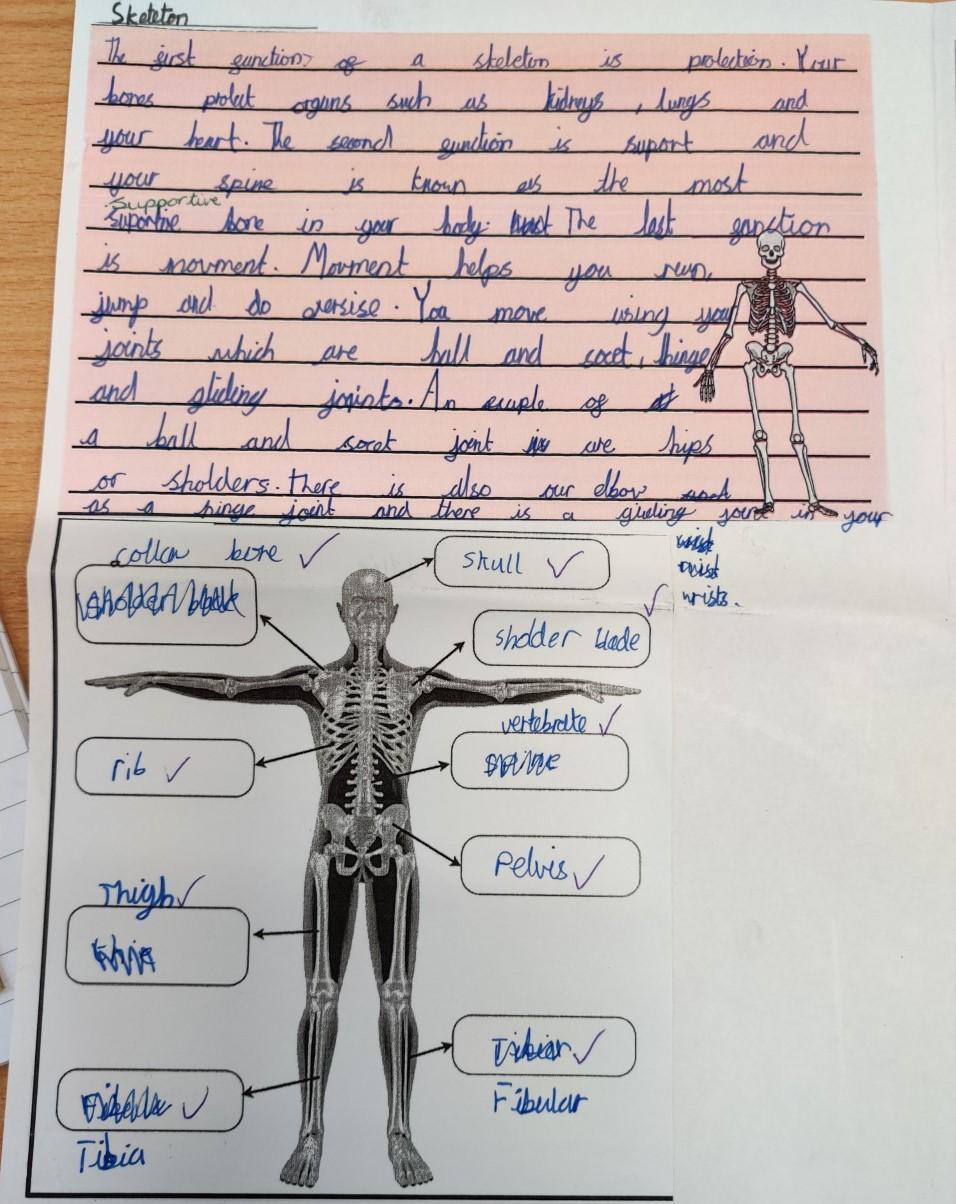 Skeleton
The first function of a skeleton is protection. Your
bones protect organs such as kidneys, lungs and
your heart. The second function is suport and
your spine is known as the most
Supportive
suportive bone in your body. The last function
is movment. Movment helps you run,
jump and do exersise. You move using your
joints which are ball and socet, hinge
and gliding joints. An exaple of
a ball and socet joint are hips
or sholders. there is also our elbow
as a hinge joint and there is a gliding joint in your
wrist
wrist
wrists.
collar bone
skull
sholder blade
sholder blade
vertebrate
rib
spine
Pelvis
Thigh
Tibiar
Fibular
Tibia